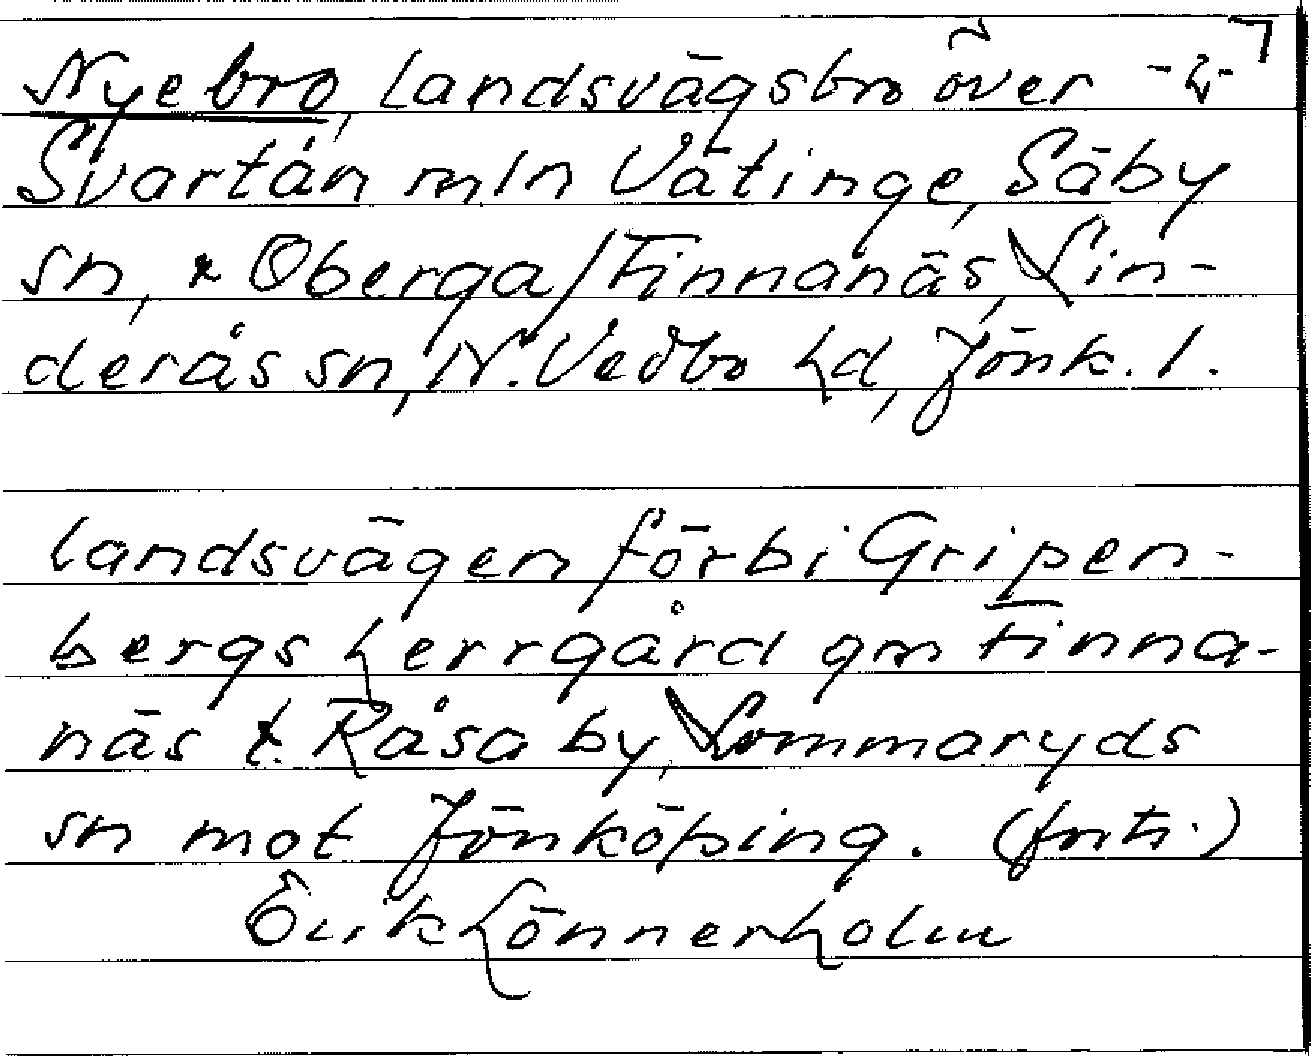 Nyebro, landsvägsbro över
Svartån mln Vätinge, Säby
sn, & Oberga/Finnanäs, Lin-
derås sn, N. Vedbo hd, Jönk. l.
landsvägen förbi Gripen-
bergs herrgård gm Finna-
näs t. Råsa by, Lommaryds
sn mot Jönköping. (fnth.)
Erik Lönnerholm